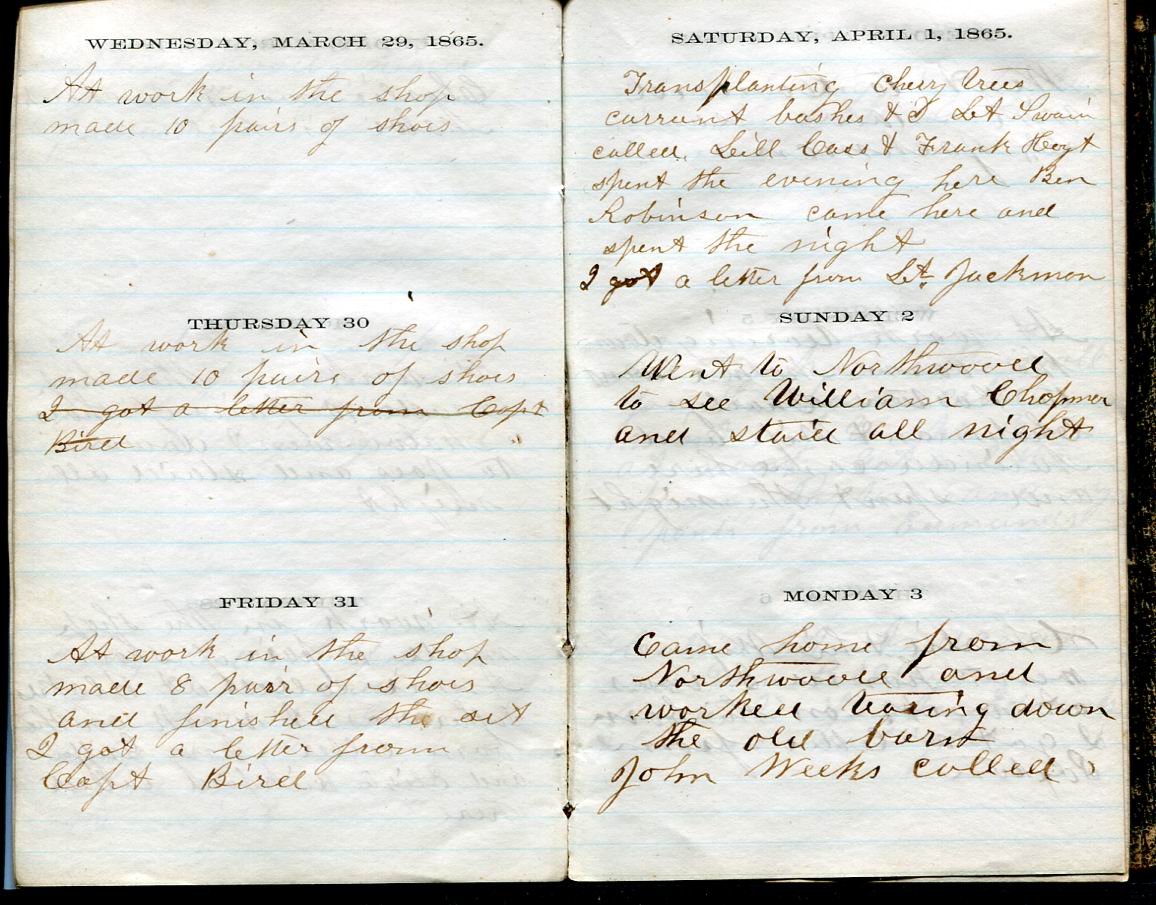 WEDNESDAY, MARCH 29, 1865.
At work in the shop
made 10 pairs of shoes
THURSDAY 30
At work in the shop
made 10 pairs of shoes
I got a letter from Capt
Bird
FRIDAY 31
At work in the shop
made 8 pair of shoes
and finished the set
I got a letter from
Capt Bird
SATURDAY, APRIL 1, 1865.
Transplanting Chery trees
currant bushes & Lt Swain
called. Cass & Frank Hoyt
spent the evening here Ben
Robinson came here and
spent the night
I got a letter from Lt. Jackman
SUNDAY 2
Went to Northwood
to see William Chapman
and staid all night
MONDAY 3
Came home from
Northwood and
worked down
the old barn
John Weeks called